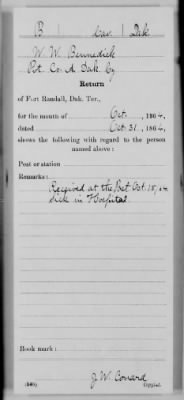 B Cav. Dak
W. W. Bennedick
Pvt. Co. A Dak. Cy
Return
of Fort Randall, Dak. Ter.,
for the month of Oct., 1864
dated Oct. 31, 1864,
shows the following with regard to the person
named above:
Post or station
Remarks:
Received at the Post Oct. 15, 64
Sick in Hospital
Book mark:
J. W. Conard
Copyist.